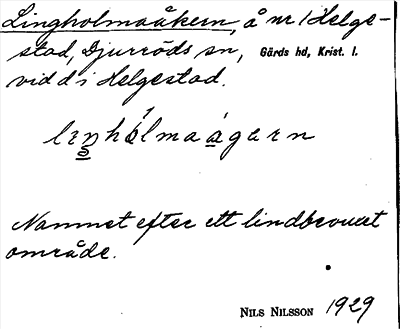 Lingholmaåkern, å nr 1 Helge-
stad, Djurröds sn, Gärds hd, Krist. l.
vid d:i Helgestad.
Namnet efter ett lindbevuxet
område.
NILS NILSSON 1929